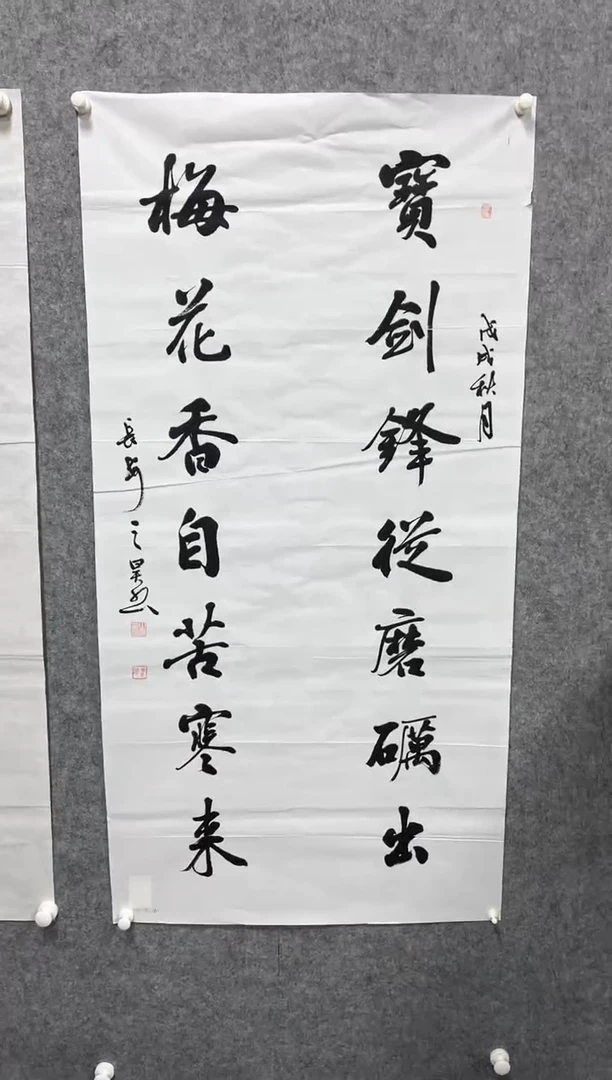 戊戌秋月
寶劍鋒從磨礪出
梅花香自苦寒来
長安